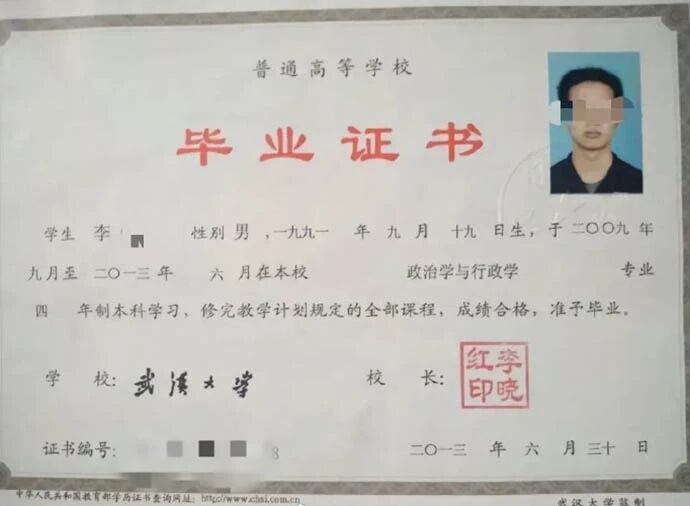 普通高等学校
毕业证书
学生 李 性别 男 ,一九九一 年 九 月 十九 日生，于 二〇〇九 年
九 月至 二〇一三 年 六 月在本校 政治学与行政学 专业
四 年制本科学习，修完教学计划规定的全部课程，成绩合格，准予毕业。
学 校: 武汉大学 校 长: 李晓红印
证书编号: 8 二〇一三 年 六 月 三十 日
中华人民共和国教育部学历证书查询网址: http://www.chsi.com.cn 武汉大学监制